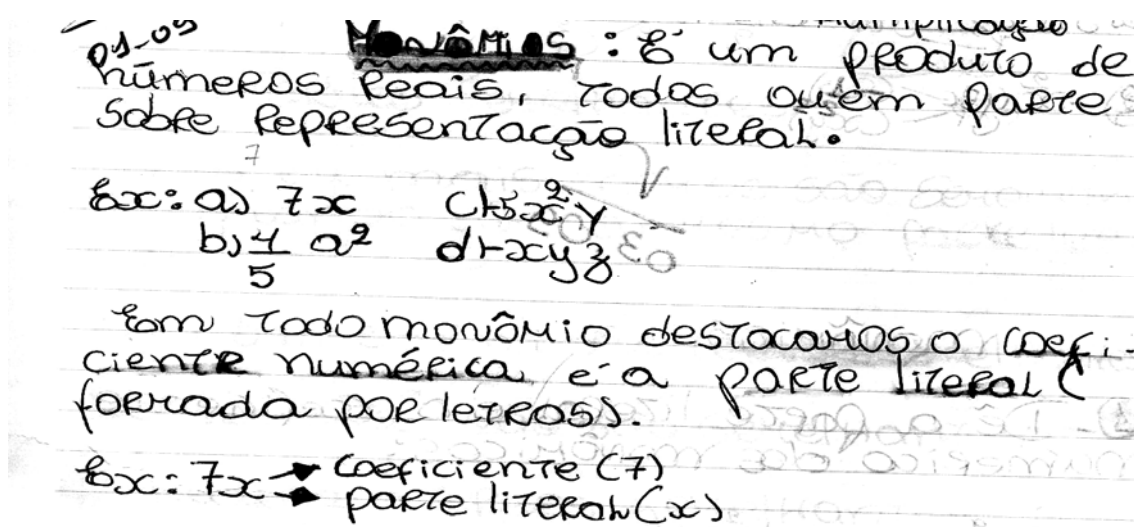 Multiplicação
01-03 Monômios : É um produto de
números reais, todos ou em parte
sobre representacção literal.
7
Ex: a) 7x c)-5x²y
b) 1/5 a² d)-xyz
Em todo monômio destacamos o coefi-
ciente numérica e a parte literal (
formada por letras).
Ex: 7x → coeficiente (7)
→ parte literal (x)